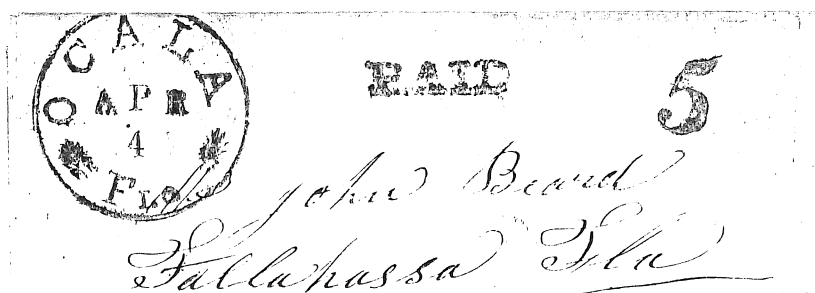 OCALA
APR
4
Fla
PAID
5
John Beard
Tallahassa Fla